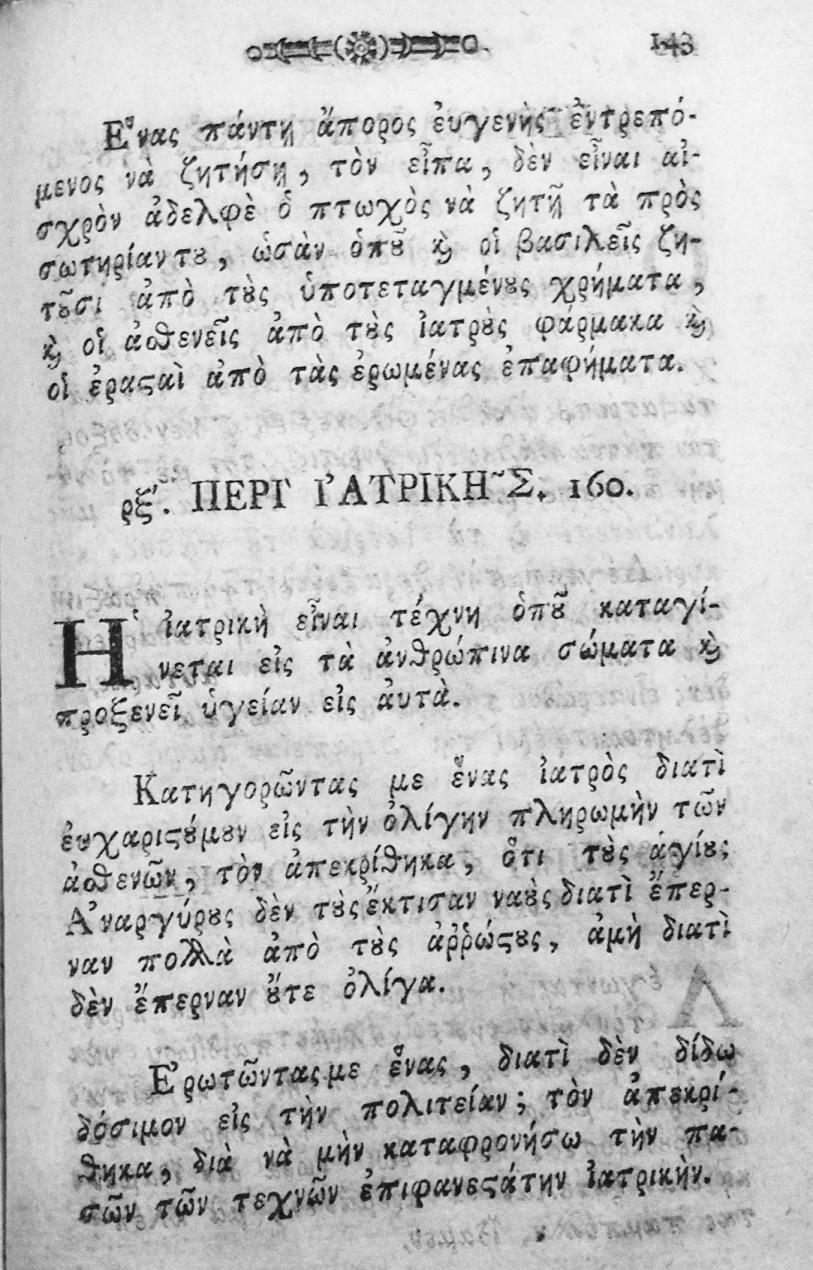 143
Εʹ͂νας πάντῃ ἄπορος ἐυγενὴς ἐντρεπό-
μενος νὰ ζητήσῃ, τὸν εἶπα, δὲν εἶναι αἰ-
σχρὸν ἀδελφὲ ὁ πτωχὸς νὰ ζητῇ τὰ πρὸς
σωτηρίαντȣ, ὡσὰν ὁπȣ͂ ϗ̀ οἱ βασιλεῖς ζη-
τȣ͂σι ἀπὸ τȣ̀ς ὑποτεταγμένȣς χρήματα,
ϗ̀ οἱ ἀσθενεῖς ἀπὸ τȣ̀ς ἰατρȣ̀ς φάρμακα ϗ̀
οἱ ἐραϛαὶ ἀπὸ τὰς ἐρωμένας ἐπαφήματα.
ρξʹ. ΠΕΡΙ` Ι᾿ΑΤΡΙΚΗ῀Σ. 160.
Ἡ ἰατρικὴ εἶναι τέχνη ὁπȣ͂ καταγί-
νεται εἰς τὰ ἀνθρώπινα σώματα ϗ̀
προξενεῖ ὑγείαν εἰς ἀυτὰ.
Κατηγορῶντας με ἕνας ἰατρὸς διατὶ
ἐυχαριϛȣ́μȣν εἰς τὴν ὀλίγην πληρωμὴν τῶν
ἀσθενῶν, τὸν ἀπεκρίθηκα, ὅτι τȣ̀ς ἁγίȣς
Ἀναργύρȣς δὲν τȣ̀ς ἔκτισαν ναȣ̀ς διατὶ ἔπερ-
ναν πολλὰ ἀπὸ τȣ̀ς ἀῤῥώϛȣς, ἀμὴ διατὶ
δὲν ἔπερναν ȣ̓́τε ὀλίγα.
Ἐρωτῶντας με ἕνας, διατὶ δὲν δίδω
δόσιμον εἰς τὴν πολιτείαν; τὸν ἀπεκρί-
θηκα, διὰ νὰ μὴν καταφρονήσω τὴν πα-
σῶν τῶν τεχνῶν ἐπιφανεϛάτην ἰατρικήν.